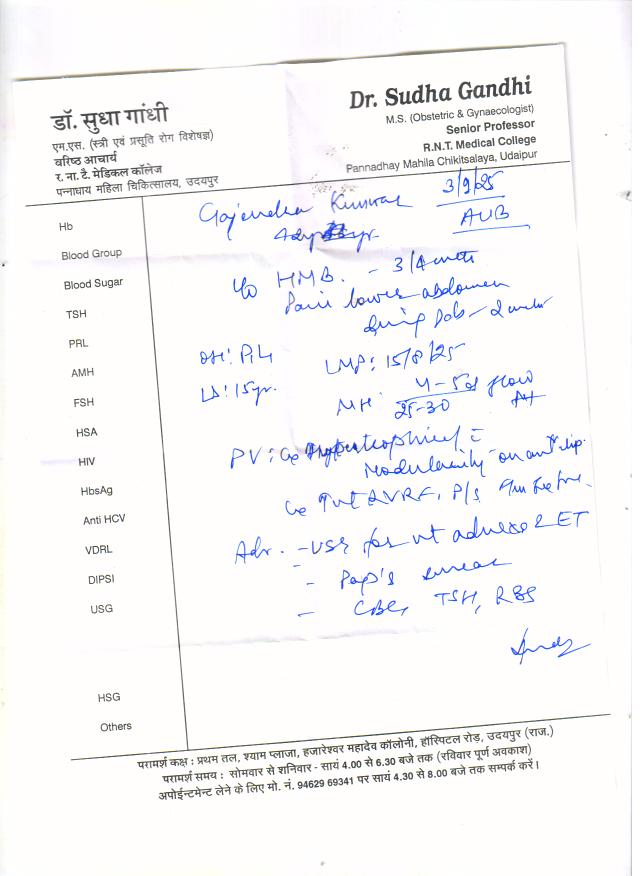 डॉ. सुधा गांधी
एम.एस. (स्त्री एवं प्रसूति रोग विशेषज्ञ)
वरिष्ठ आचार्य
र. ना. टै. मेडिकल कॉलेज
पन्नाधाय महिला चिकित्सालय, उदयपुर
Dr. Sudha Gandhi
M.S. (Obstetric & Gynaecologist)
Senior Professor
R.N.T. Medical College
Pannadhay Mahila Chikitsalaya, Udaipur
3/9/25
Gajendra Kunwar
AUB
Hb
Blood Group
Blood Sugar
TSH
PRL
AMH
FSH
HSA
HIV
HbsAg
Anti HCV
VDRL
DIPSI
USG
HSG
Others
c/o HMB. - 3/4
Pain lower abdomen
during
OH: P1L1
LMP: 15/8/25
LD: 15yr.
MH: 4-5d flow
25-30
PV: Cx Hypertrophied c
Nodularity on ant lip.
Cx P/S
Adv. - USG for ut adnexa & ET
- Pap's smear
- CBC, TSH, RBS
परामर्श कक्ष : प्रथम तल, श्याम प्लाजा, हजारेश्वर महादेव कॉलोनी, हॉस्पिटल रोड़, उदयपुर (राज.)
परामर्श समय : सोमवार से शनिवार - सायं 4.00 से 6.30 बजे तक (रविवार पूर्ण अवकाश)
अपोईन्टमेन्ट लेने के लिए मो. नं. 94629 69341 पर सायं 4.30 से 8.00 बजे तक सम्पर्क करें।